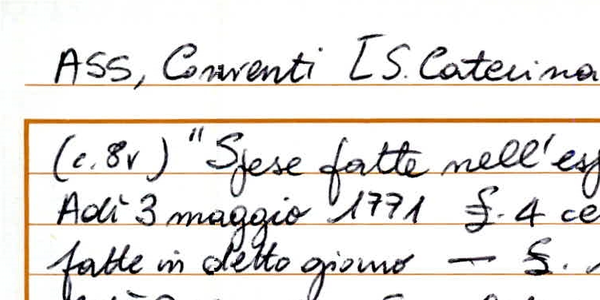 ASS, Conventi [S. Caterina
(c. 8v) "Spese fatte nell'esp
Adì 3 maggio 1771 £. 4 ce
fatte in detto giorno — £.